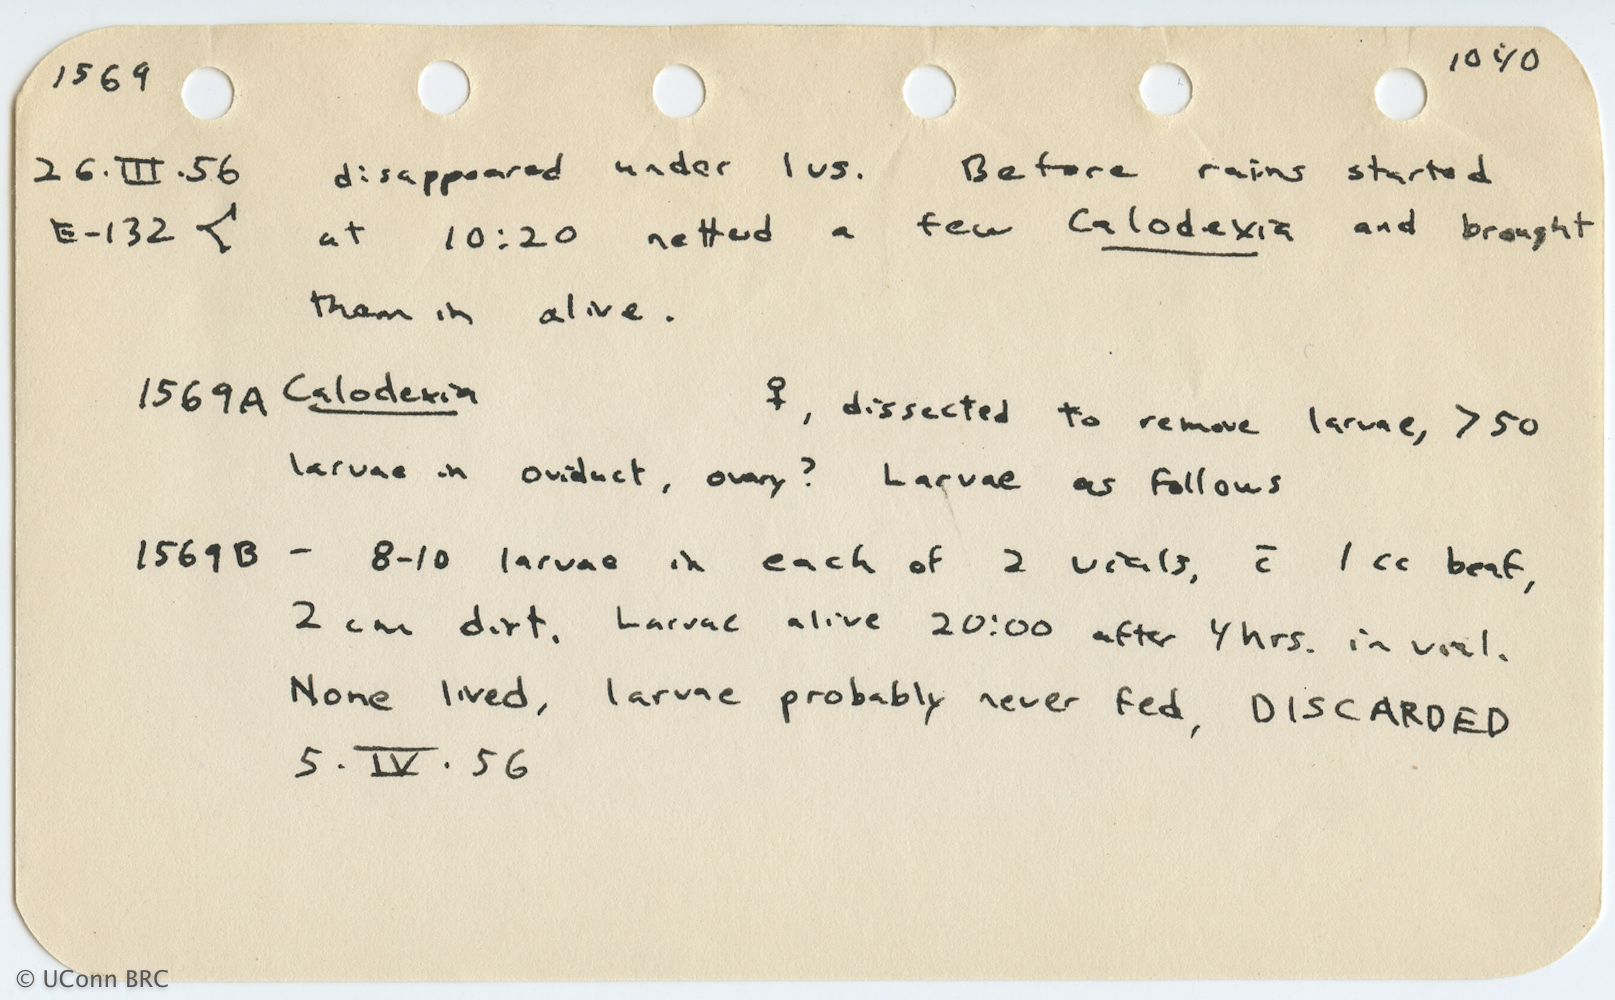 1569 1040
26.III.56 disappeared under lvs. Before rains started
E-132 < at 10:20 netted a few Calodexia and brought
them in alive.
1569A Calodexia ♀, dissected to remove larvae, >50
larvae in oviduct, ovary? Larvae as follows
1569B - 8-10 larvae in each of 2 vials, c̄ 1 cc beef,
2 cm dirt. Larvae alive 20:00 after 4 hrs. in vial.
None lived, larvae probably never fed, DISCARDED
5.IV.56
© UConn BRC